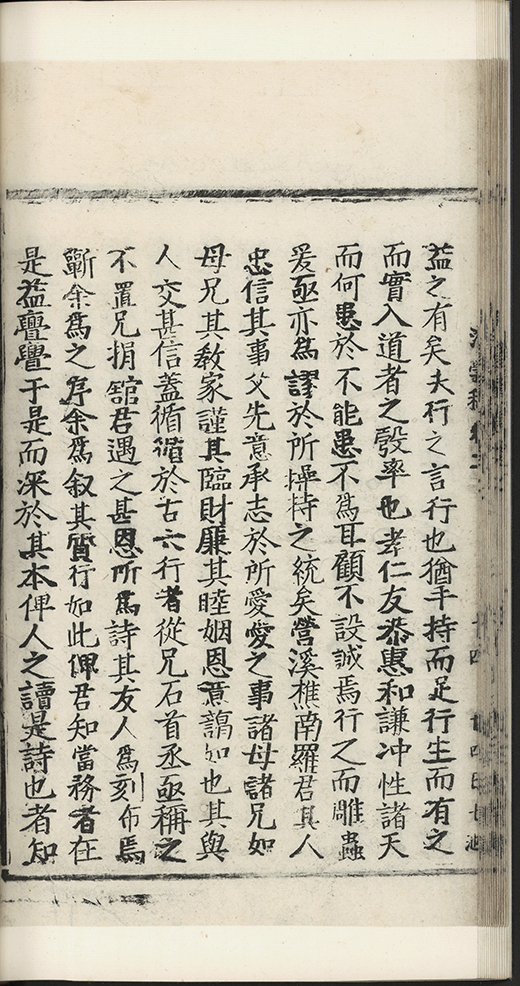 益之有矣夫行之言行也猶手持而足行生而有之
而實入道者之彀率也孝仁友恭惠和謙冲性諸天
而何患於不能患不為耳顧不設誠焉行之而雕蟲
爰亟亦為謬於所操持之統矣營溪樵南羅君其人
忠信其事父先意承志於所愛愛之事諸母諸兄如
母兄其教家謹其臨財廉其睦姻恩意藹如也其與
人交甚信蓋循循於古六行者從兄石首丞亟稱之
不置兄捐舘君遇之甚恩所為詩其友人為刻布焉
蘄余為之序余為叙其質行如此俾君知當務者在
是益亹亹于是而深於其本俾人之讀是詩也者知